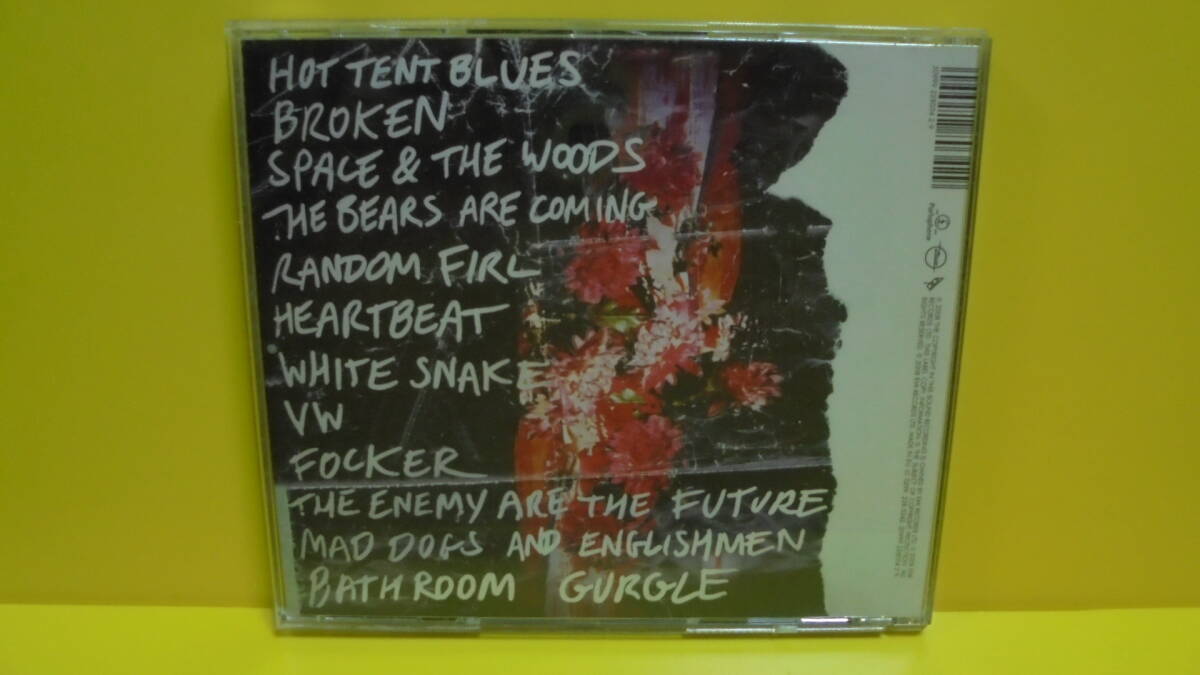 HOT TENT BLUES
BROKEN
SPACE & THE WOODS
THE BEARS ARE COMING
RANDOM FIRL
HEARTBEAT
WHITE SNAKE
VW
FOCKER
THE ENEMY ARE THE FUTURE
MAD DOGS AND ENGLISHMEN
BATHROOM GURGLE
Parlophone